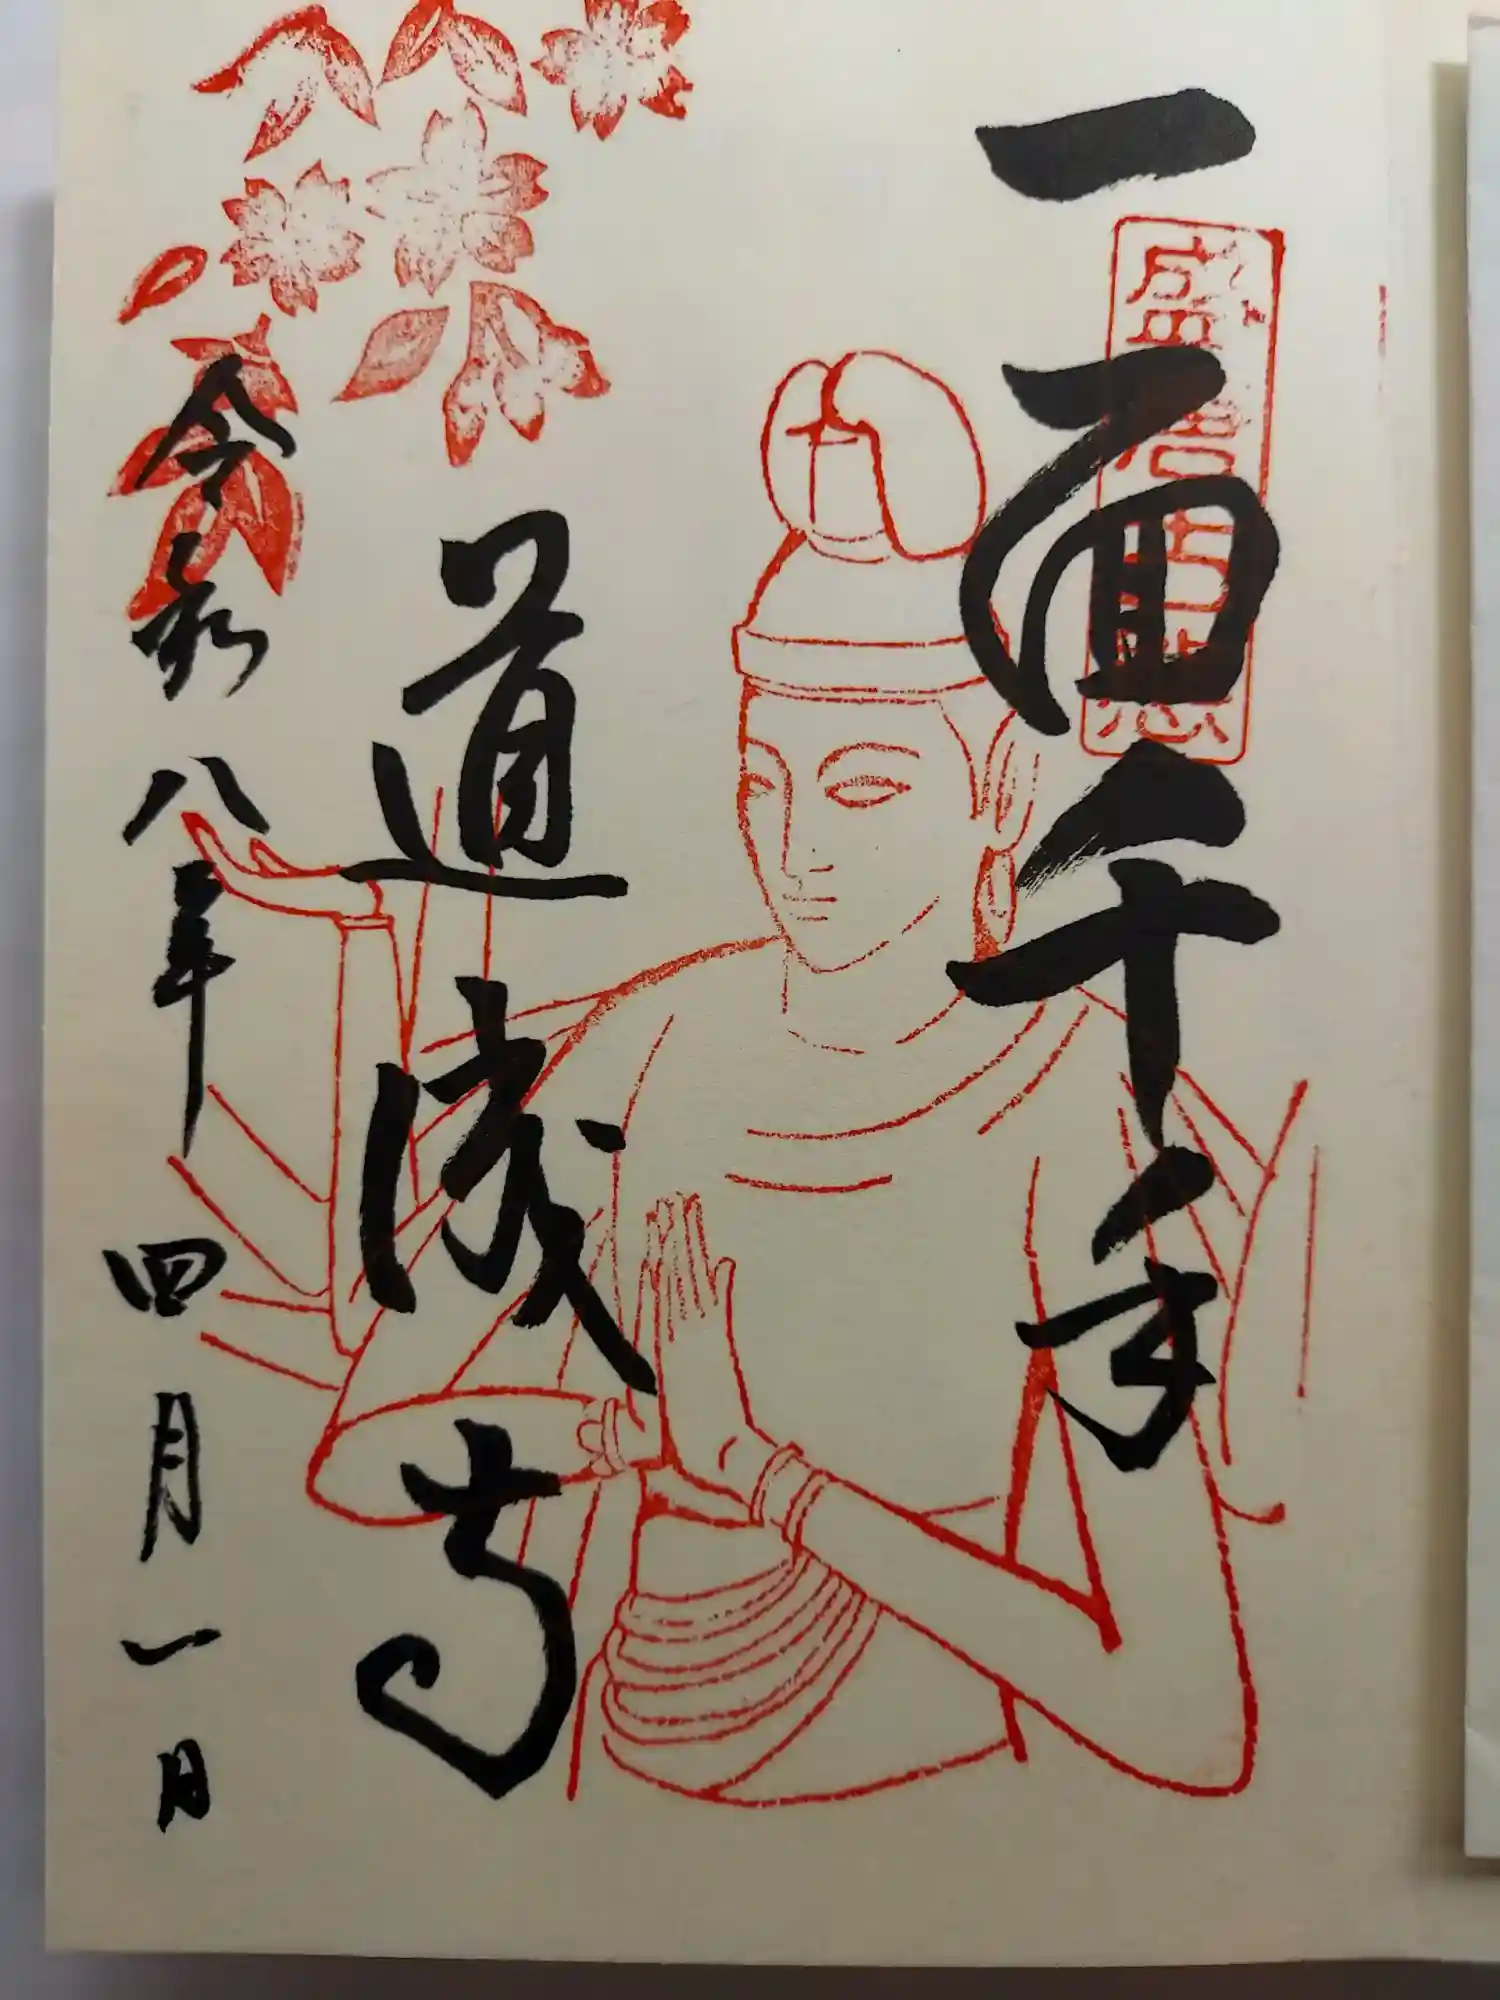 一面千手
道成寺
令和八年四月一日